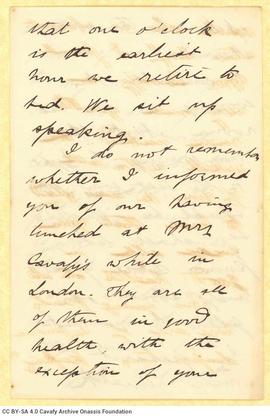 that one o'clock
is the earliest
hour we retire to
bed. We sit up
speaking.
I do not remember
whether I informed
you of our having
lunched at Mrs
Cavafy's while in
London. They are all
of them in good
health, with the
exception of your
CC BY-SA 4.0 Cavafy Archive Onassis Foundation